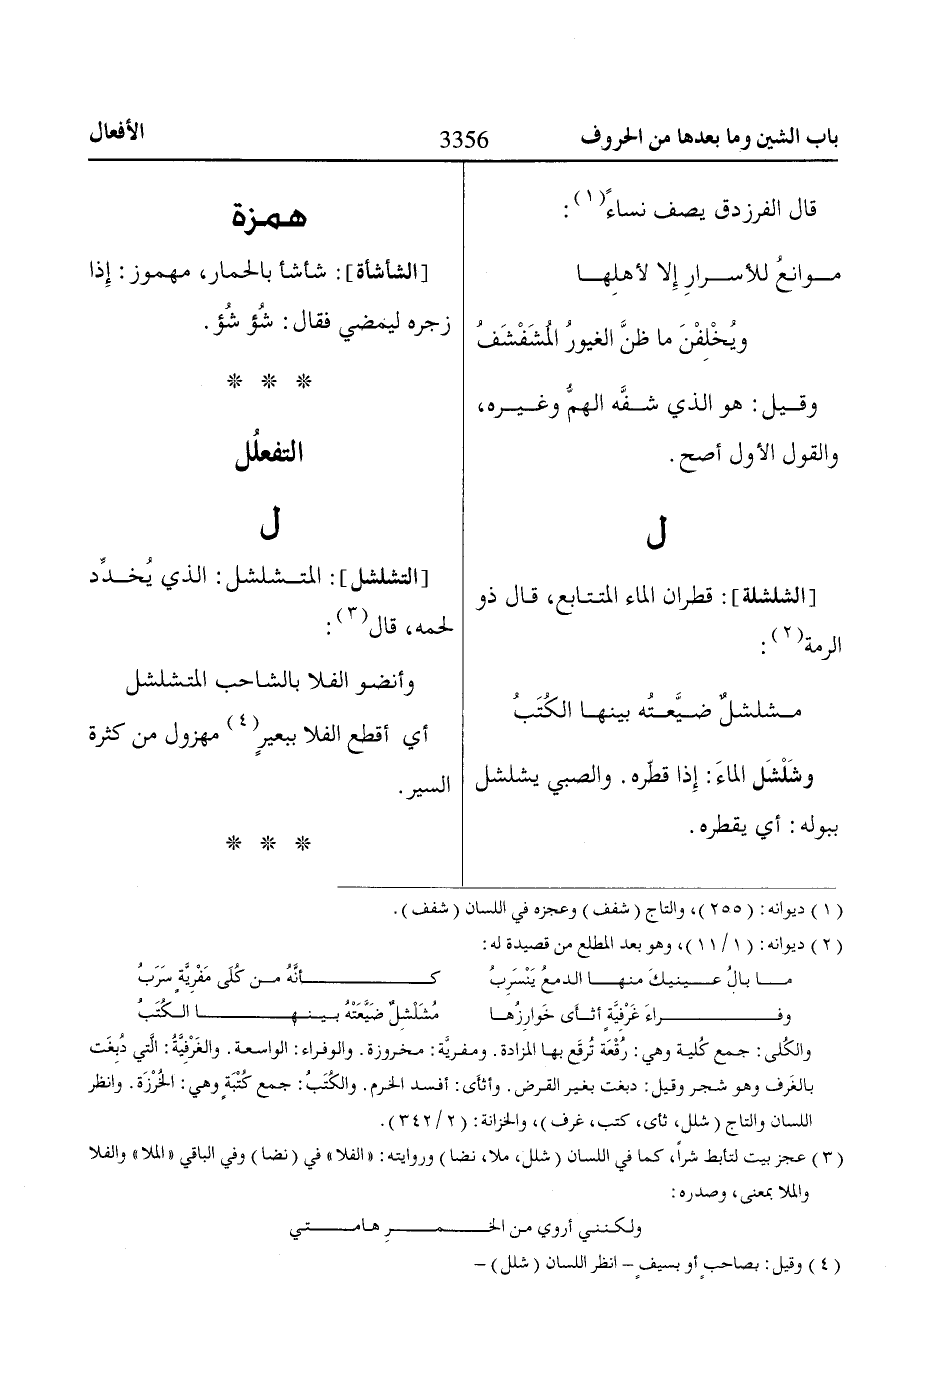 باب الشين وما بعدها من الحروف 3356 الأفعال
قال الفرزدق يصف نساءً(١):
مـوانعُ للأسـرارِ إلا لأهلِهـا
ويُخْلِفْنَ ما ظنَّ الغيورُ المُشَفْشَفُ
وقـيل: هو الذي شـفَّه الهمُّ وغـيـره،
والقول الأول أصح.
ل
[الشلشلة]: قطران الماء المتتابع، قـال ذو
الرمة(٢):
مـشلشلٌ ضيَّعـتْه بينهـا الكُتَبُ
وشَلْشَل الماءَ: إذا قطّره. والصبي يشلشل
ببوله: أي يقطره.
همزة
[الشأشأة]: شأشأ بالحمار، مهموز: إذا
زجره ليمضي فقال: شُؤ شُؤ.
* * *
التفعلُل
ل
[التشلشل]: المتـشلشل: الذي يُخـدَّد
لحمه، قال(٣):
وأنضـو الفـلا بالشـاحب المتشلشل
أي أقطع الفلا ببعيرٍ(٤) مهزول من كثرة
السير.
* * *
(١) ديوانه: (٢٥٥)، والتاج (شفف) وعجزه في اللسان (شفف).
(٢) ديوانه: (١/١١)، وهو بعد المطلع من قصيدة له:
مـا بـالُ عـينيكَ منهـا الدمعُ يَنْسَرِبُ كـأنَّهُ مـن كُلَى مَفْرِيَّةٍ سَرَبُ
وفـراءَ غَرْفيَّةٍ أثـأى خَوارِزُهـا مُشَلْشِلٌ ضَيَّعَتْهُ بـينـهـا الـكُتَبُ
والكُلى: جمع كُلية وهي: رُقْعَة تُرقَع بها المزادة. ومفريَّة: مخروزة. والوفراء: الواسعة. والغَرْفيَّةُ: الَّتي دُبغَت
بالغَرف وهو شجر وقيل: دبغت بغير القرض. وأثأى: أفسد الخرم. والكُتَبُ: جمع كُتْبَةٍ وهي: الخُرْزَة. وانظر
اللسان والتاج (شلل، ثأى، كتب، غرف)، والخزانة: (٢/٣٤٢).
(٣) عجز بيت لتأبط شراً، كما في اللسان (شلل، ملا، نضا) وروايته: «الفلا» في (نضا) وفي الباقي «الملا» والفلا
والملا بمعنى، وصدره:
ولكـنـني أروي مـن الخـمـرِ هـامـتـي
(٤) وقيل: بصاحبٍ أو بسيفٍ – انظر اللسان (شلل) –